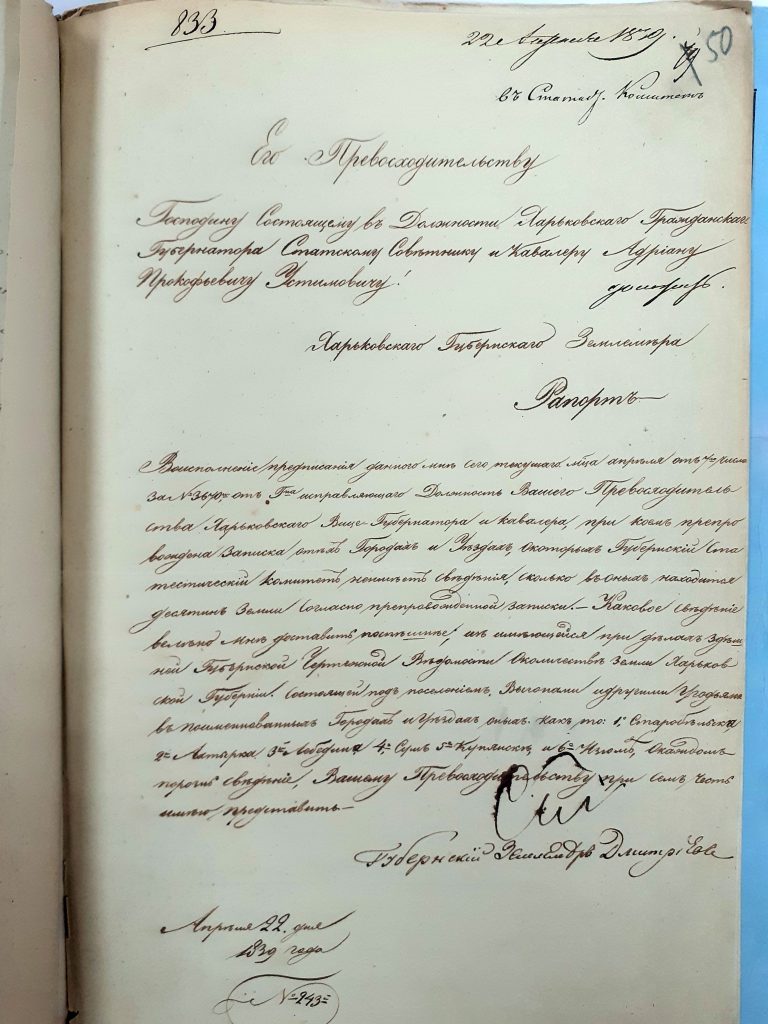 833.
22 е Апреля 1839.
50
въ Статист. Комитетъ
Его Превосходительству
Господину Состоящему въ Должности Харьковскаго Гражданскаго
Губернатора Статскому Совѣтнику и Кавалеру Адріану
Прокофьевичу Устимовичу!
Харьковскаго Губернскаго Землемѣра
Рапортъ
Воисполненіе предписанія даннаго мнѣ сего текущаго мѣца апрѣля отъ 7го числа
за № 3670м отъ Гна исправляющаго Должность Вашего Превосходитель
ства Харьковскаго Вице-Губернатора и кавалера, при коемъ препро
вождена Записка отѣхъ Городахъ и Уѣздахъ, окоторыхъ Губернскій Ста
тестическій комитетъ неимѣетъ свѣдѣнія, сколько въоныхъ находится
десятинъ Земли согласно препровожденной записки. — Каковое свѣдѣніе
велѣно мнѣ доставить поспѣшнѣе; изъ имѣющейся при дѣлахъ здѣш
ней Губернской Чертежной Вѣдомости Околичествѣ Земли Харьков
ской Губерніи. Состоящей подъ поселеніемъ, Выгонами идругими Угодьями
въ поименованныхъ Городахъ и Уѣздахъ оныхъ какъ то: 1е Старобѣльскъ
2е Ахтырка 3е Лебединъ 4е Сумъ 5е Купянскъ, и 6е Изюмъ, Окаждомъ
порознь свѣдѣніе, Вашему Превосходительству при семъ честь
имѣю представить —
Губернскій Землемѣръ Дмитріевъ
Апрѣля 22. дня
1839 года
№ 243